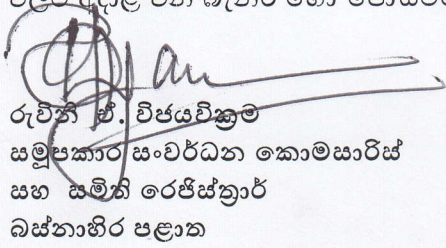 රුවිනි ඒ. විජයවික්‍රම
සමූපකාර සංවර්ධන කොමසාරිස්
සහ සමිති රෙජිස්ත්‍රාර්
බස්නාහිර පළාත